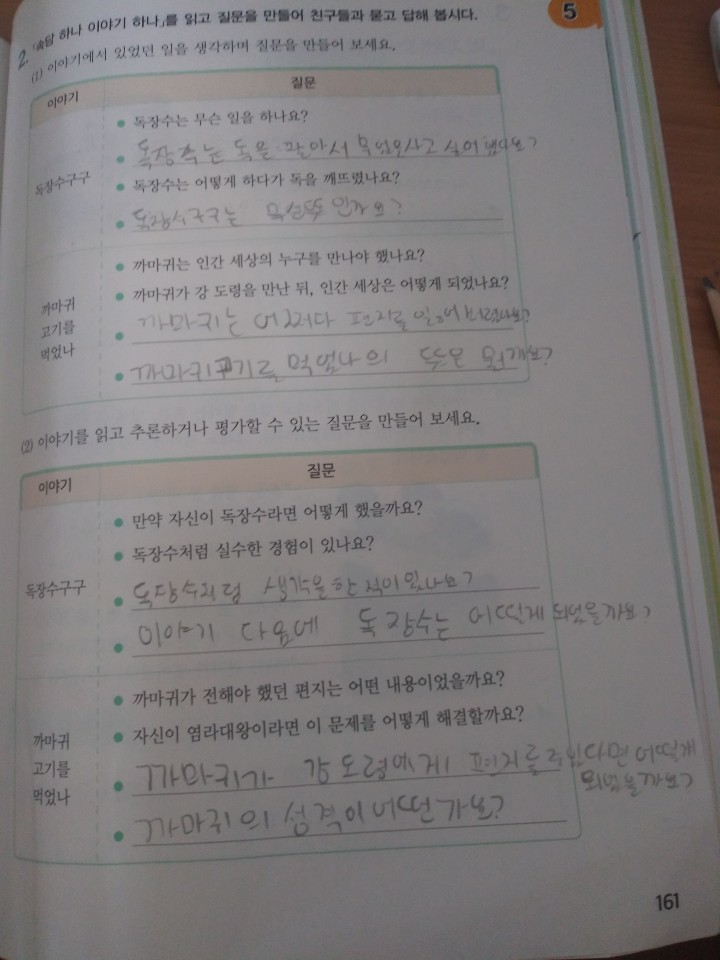 5
2. 「속담 하나 이야기 하나」를 읽고 질문을 만들어 친구들과 묻고 답해 봅시다.
(1) 이야기에서 있었던 일을 생각하며 질문을 만들어 보세요.
이야기 질문
독장수구구
● 독장수는 무슨 일을 하나요?
● 독장수는 독을 팔아서 무엇을 사고 싶어했나요?
● 독장수는 어떻게 하다가 독을 깨뜨렸나요?
● 독장수구구는 무슨 뜻인가요?
까마귀
고기를
먹었나
● 까마귀는 인간 세상의 누구를 만나야 했나요?
● 까마귀가 강 도령을 만난 뒤, 인간 세상은 어떻게 되었나요?
● 까마귀는 어쩌다 편지를 잃어버렸나요?
● 까마귀고기를 먹었나의 뜻은 뭘까요?
(2) 이야기를 읽고 추론하거나 평가할 수 있는 질문을 만들어 보세요.
이야기 질문
독장수구구
● 만약 자신이 독장수라면 어떻게 했을까요?
● 독장수처럼 실수한 경험이 있나요?
● 독장수처럼 생각을 한 적이 있나요?
● 이야기 다음에 독장수는 어떻게 되었을까요?
까마귀
고기를
먹었나
● 까마귀가 전해야 했던 편지는 어떤 내용이었을까요?
● 자신이 염라대왕이라면 이 문제를 어떻게 해결할까요?
● 까마귀가 강도령에게 편지를 주었다면 어떻게
되었을까요?
● 까마귀의 성격이 어떤가요?
161